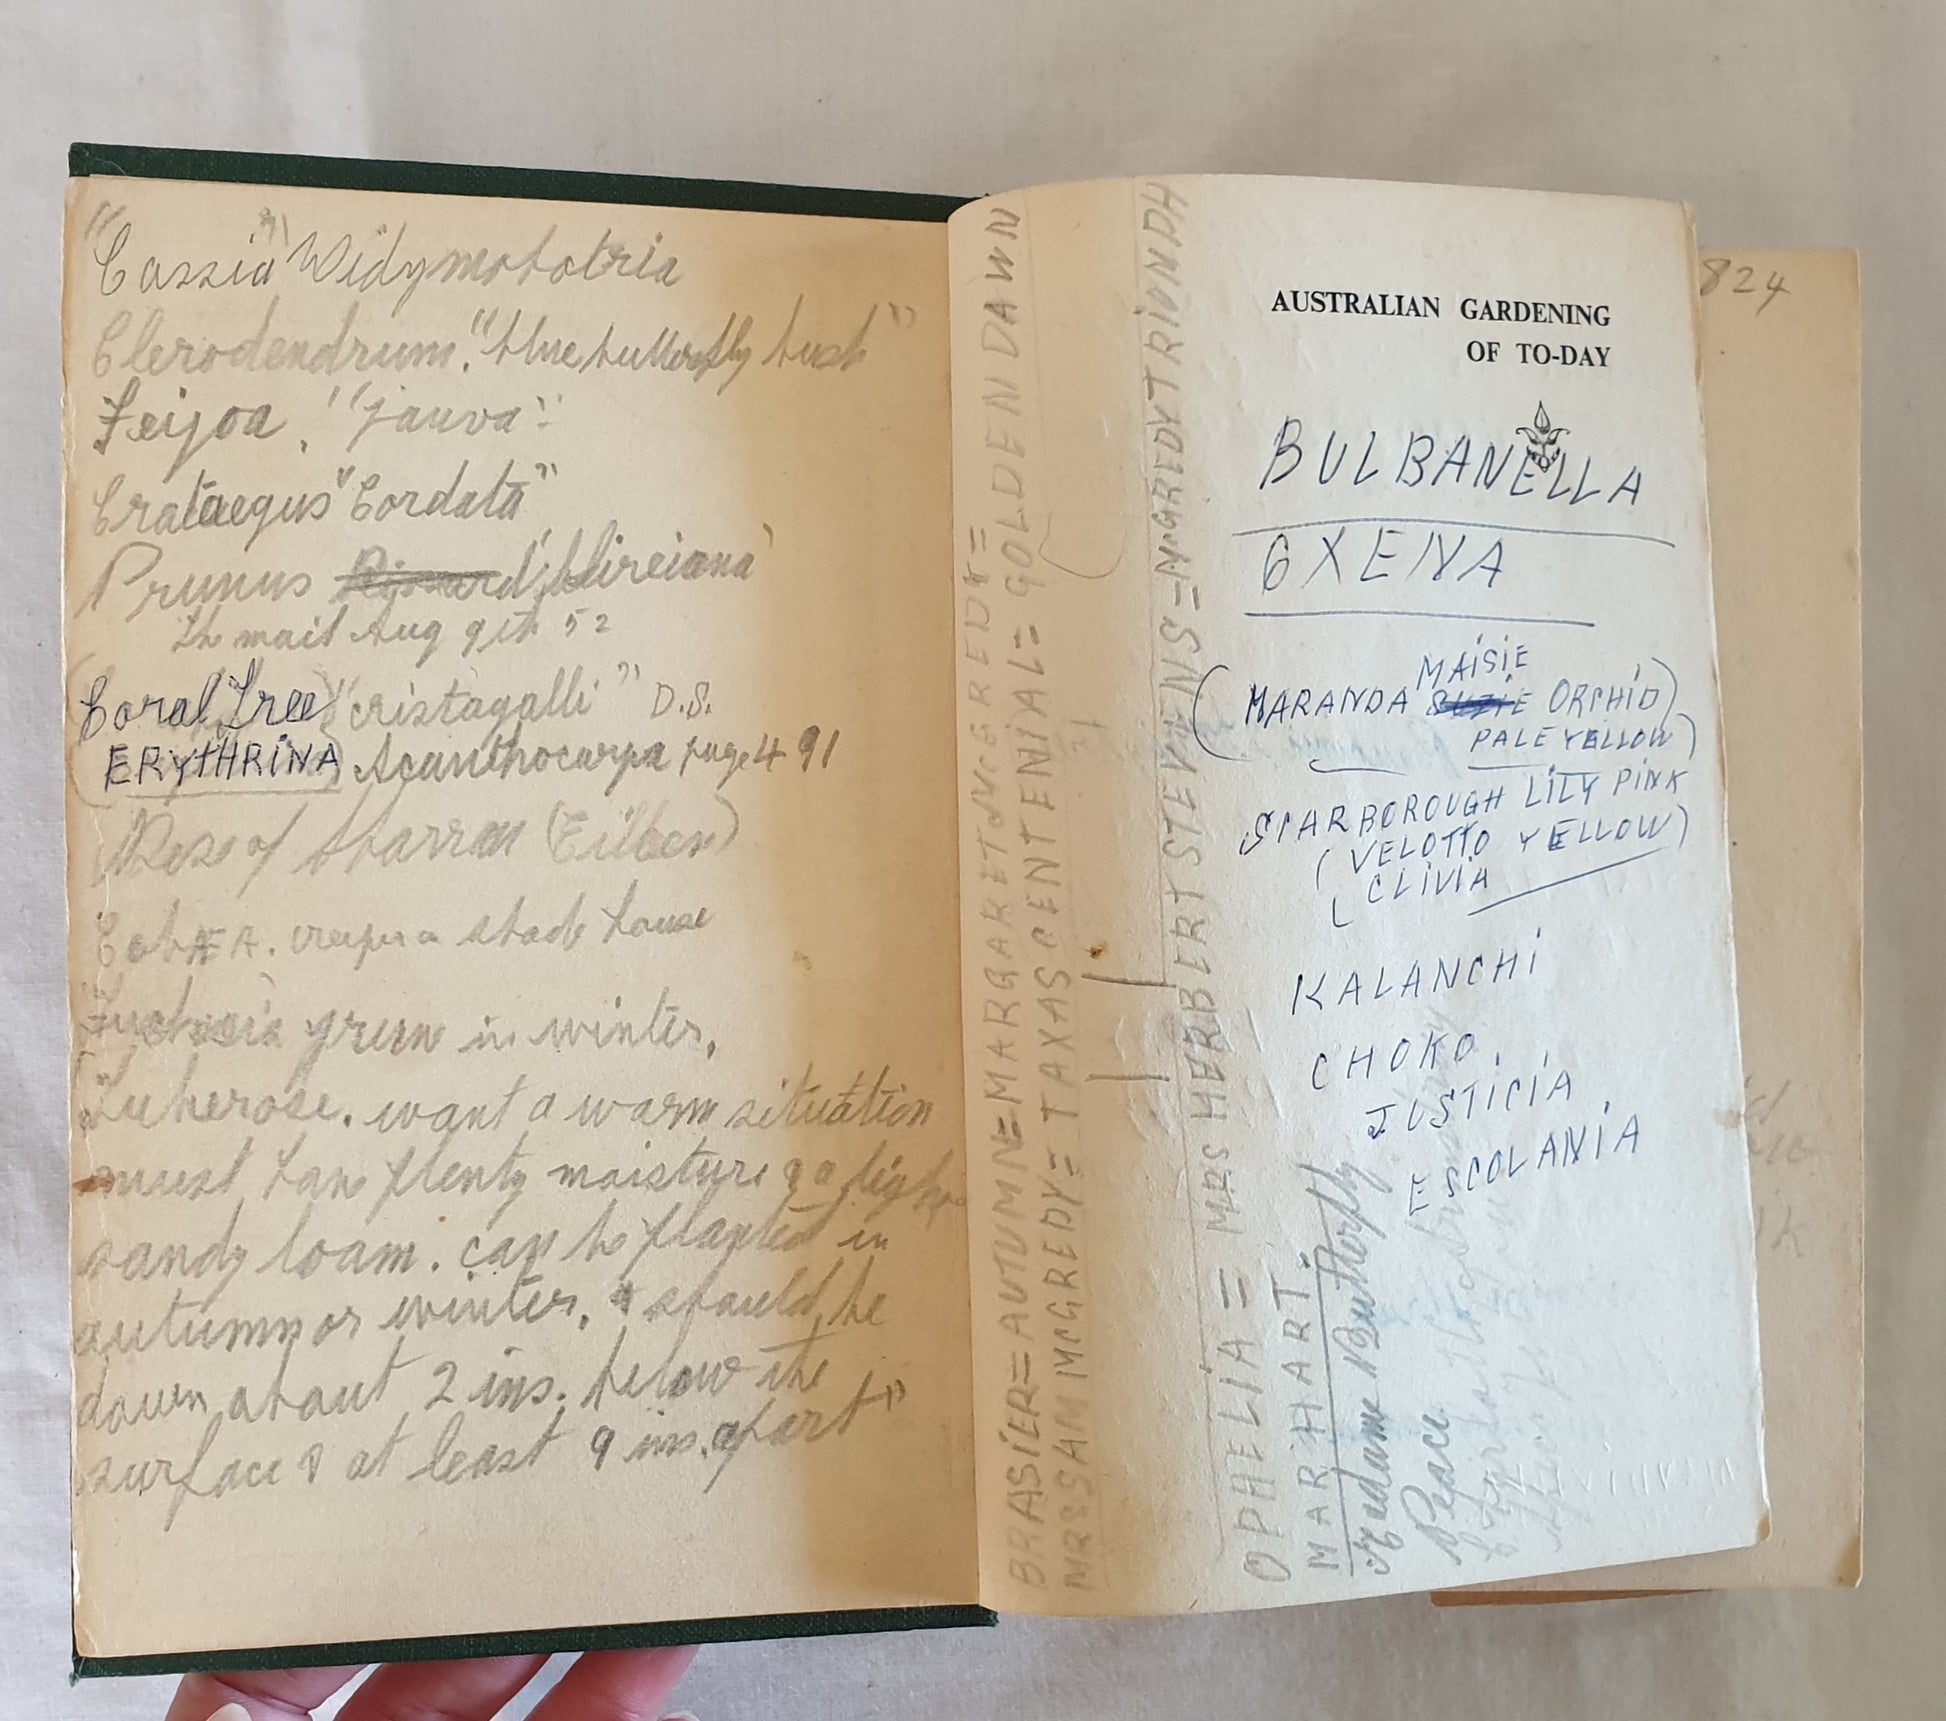 "Cassia" Widymobotria
Clerodendrum. "blue butterfly bush"
Feijoa, "jauva"
Crataegus "Cordata"
Prunus blireiana
mail Aug 9th 52
Coral Tree "cristagalli" D.S.
ERYTHRINA Acanthocarpa page 491
Rose of Sharran (Eileen)
CobÆA. creeper shade house
Fuchsia green in winter.
Tuberose. want a warm situation
must have plenty moisture & a light
sandy loam. can be planted in
autumn or winter. & should be
down about 2 ins. below the
surface & at least 9 ins. apart"
BRASIER = AUTUMN = MARGARET McGREDY =
MRS SAM McGREDY = TAXAS CENTENIAL = GOLDEN DAWN
OPHELIA = MRS HERBERT STEVENS = McGREDY TRIONDH
MARi HART.
Madame Butterfly
Peace
AUSTRALIAN GARDENING
OF TO-DAY
BULBANELLA
GXENA
MAISIE
(MARANDA SUZIE ORCHID)
PALE YELLOW)
SCARBOROUGH LILY PINK
(VELOTTO YELLOW)
(CLIVIA
KALANCHI
CHOKO.
JUSTICIA
ESCOLANIA
824